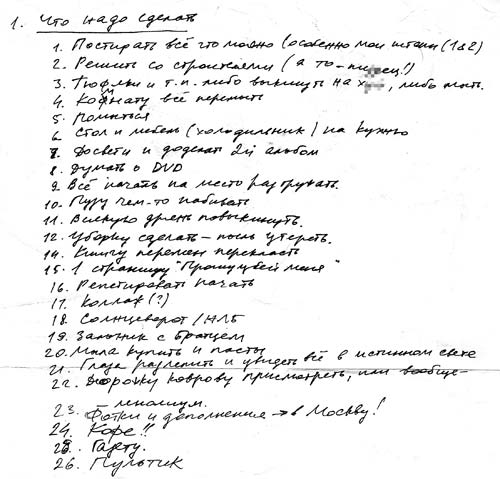 1. Что надо сделать
1. Постирать всё что можно (особенно мои штаны (1 и 2)
2. Решить со строителями (а то - пи ец!)
3. Тюфяки и т.п. либо выкинуть на х , либо мыть.
4. Комнату всё перемыть
5. Помыться
6. Стол и мебель (холодильник) на кухню
7. и доделать 2й альбом
8. Думать о DVD
9. Всё начать на место разгружать.
10. чем-то набивать
11. Всякую дрянь повыкинуть.
12. Уборку сделать - пыль утереть.
14. Книгу перелом переклеить
15. 1 страницу "Процитируй меня"
16. Репетировать начать
17. Коллаж (?)
18. Солнцеворот / НЛБ
19. с братцем
20. Мыла купить и пасты
21. Глаза разлепить и увидеть всё в истинном свете
22. Дорожку коврову присмотреть, или вообще-
линолиум.
23. Фотки и дополнения → в Москву!
24. Кофе!!
25. Гарту.
26. Пультик